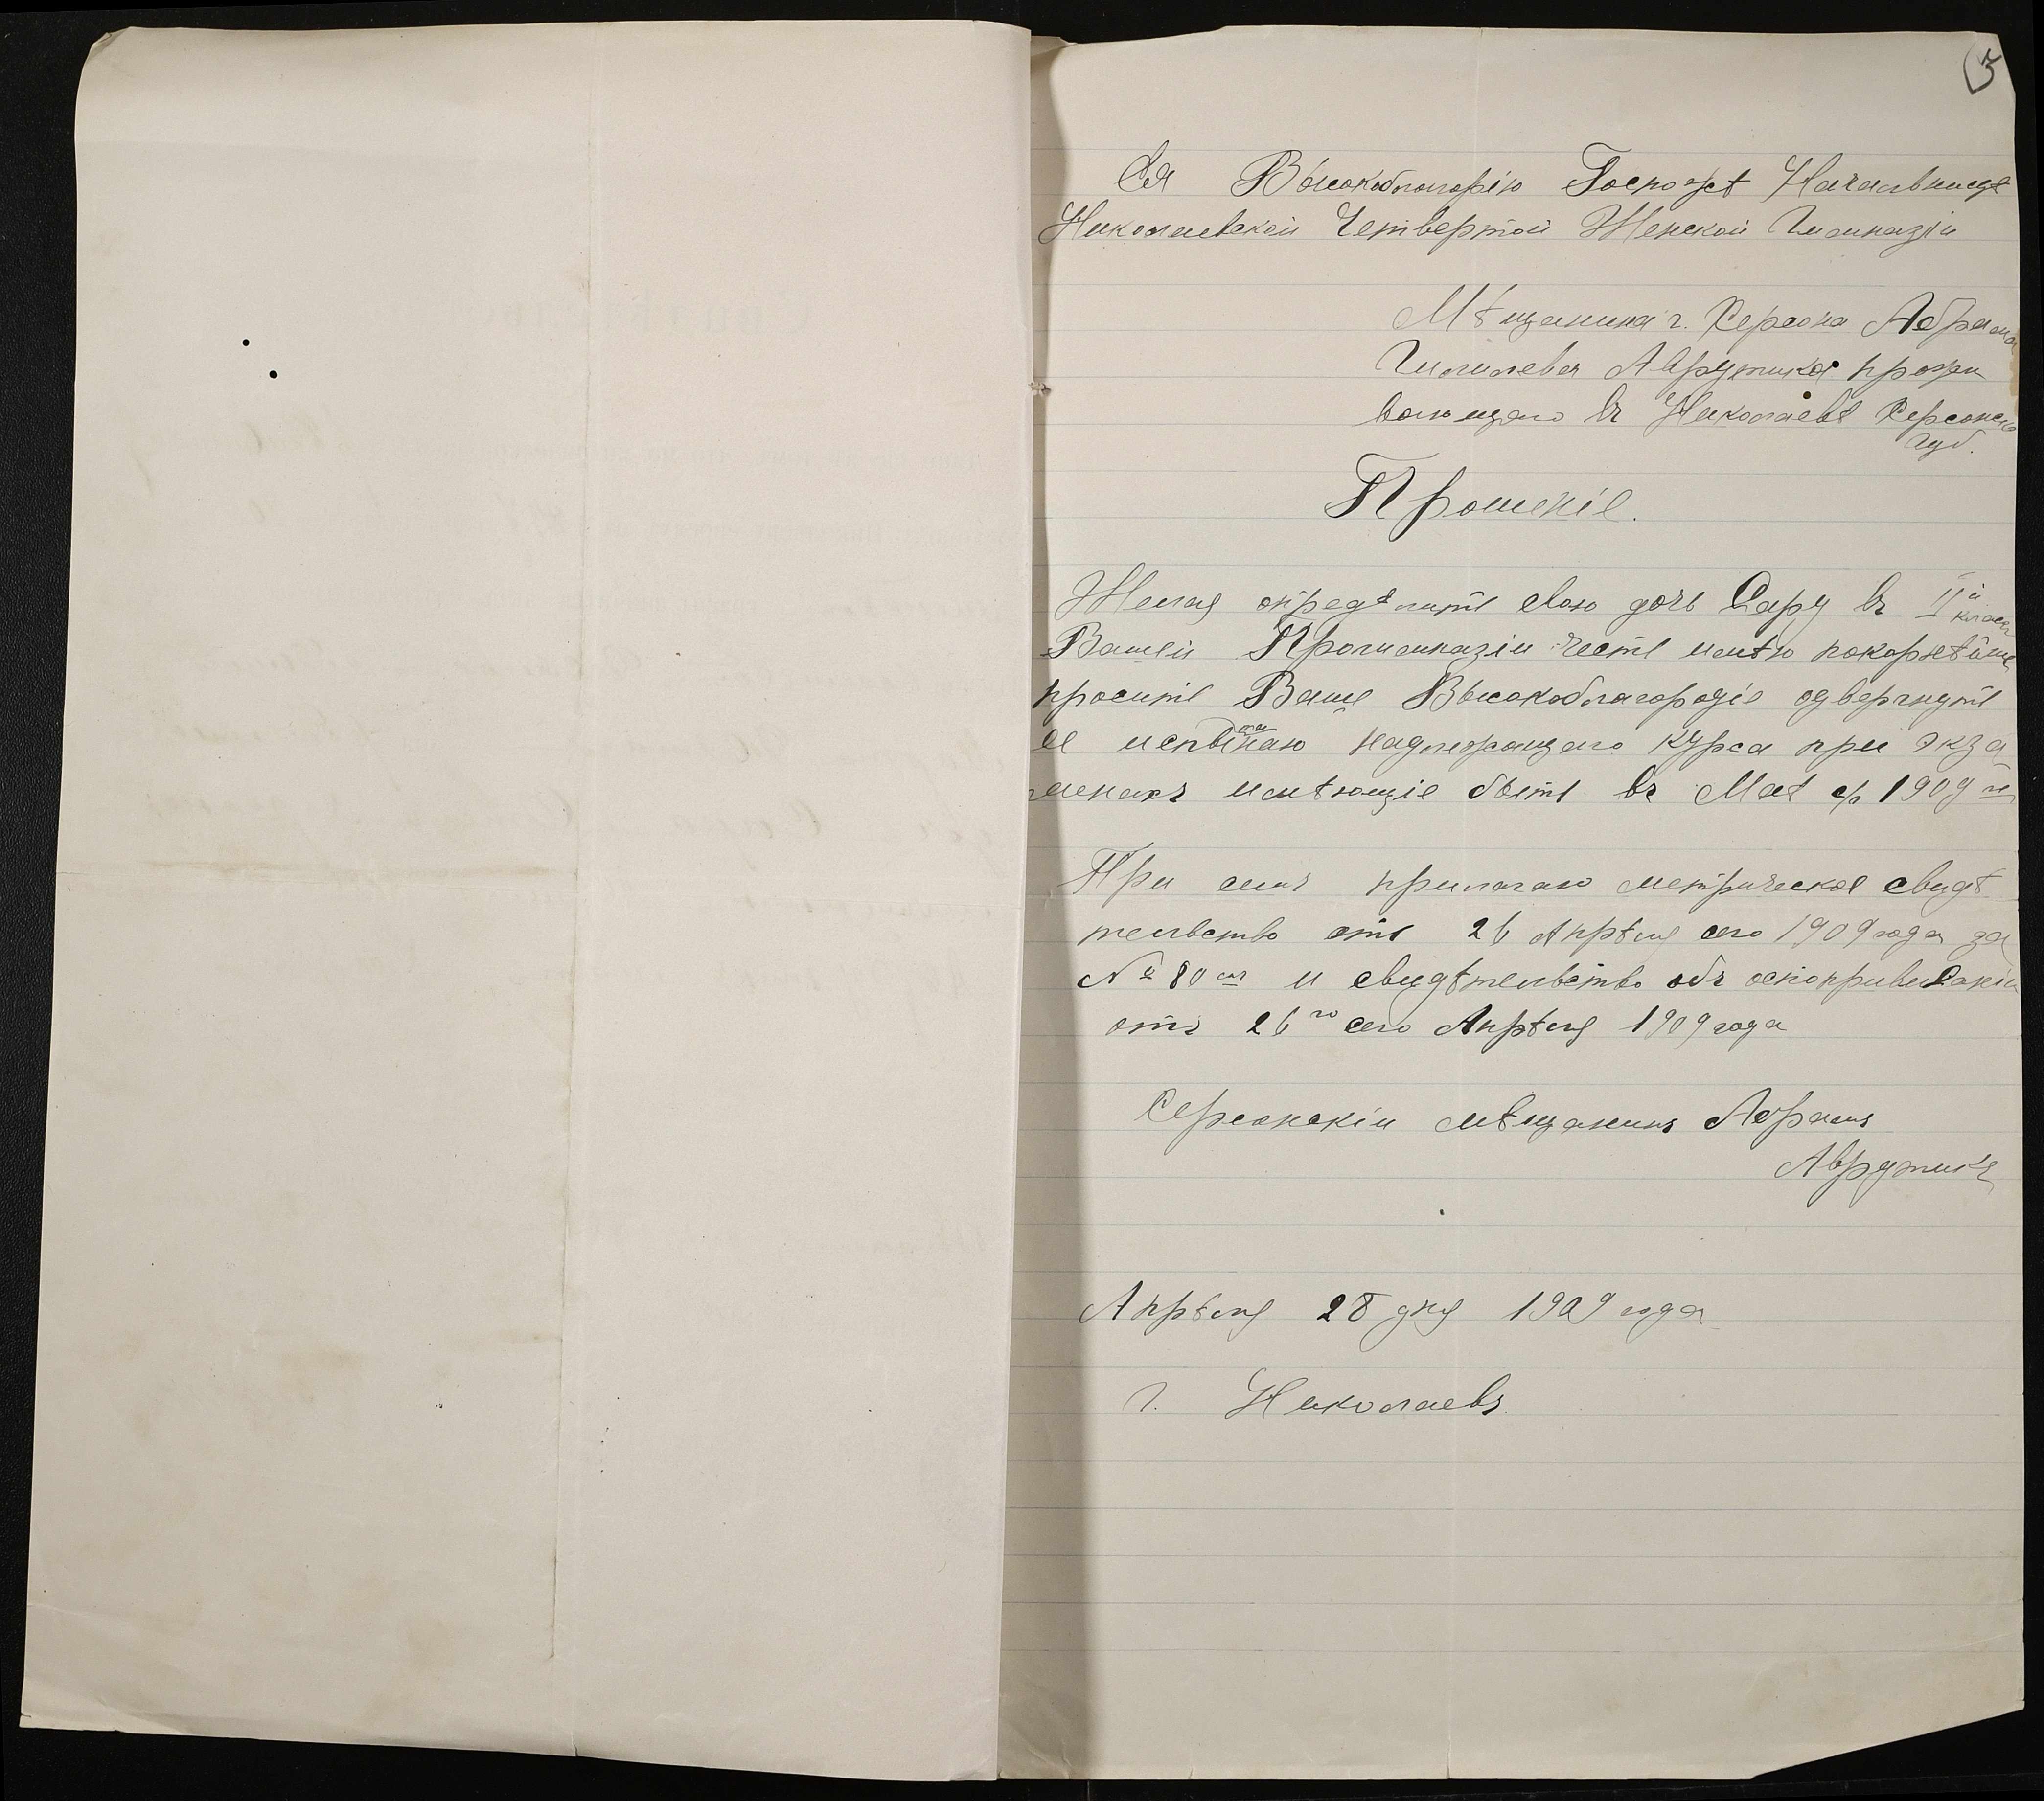 5
Ея Высокоблагорію Госпожѣ Начальницѣ
Николаевской Четвертой Женской Гимназіи
Мѣщанина г. Херсона Абрама
Аврутика прожи
вающаго въ Николаевѣ Херсонск
губ.
Прошеніе.
Желая опредѣлить свою дочь Сару въ IIй
класъ
Вашей Прогимназіи честь имѣю покорнѣйше
просить Ваше Высокоблагородіе одвергнуть
ее испытанаю надлежащаго курса при экза
менахъ имѣющіе быть въ Маѣ с/г 1909 г
При семъ прилагаю метрическое свидѣ
тельство отъ 26 Апрѣля сего 1909 года за
№ 80 и свидѣтельство объ оспопрививаніи
отъ 26го сего Апрѣля 1909 года
Херсонскій мѣщанинъ Абрамъ
Аврутикъ
Апрѣля 28 дня 1909 года
г. Николаевъ.